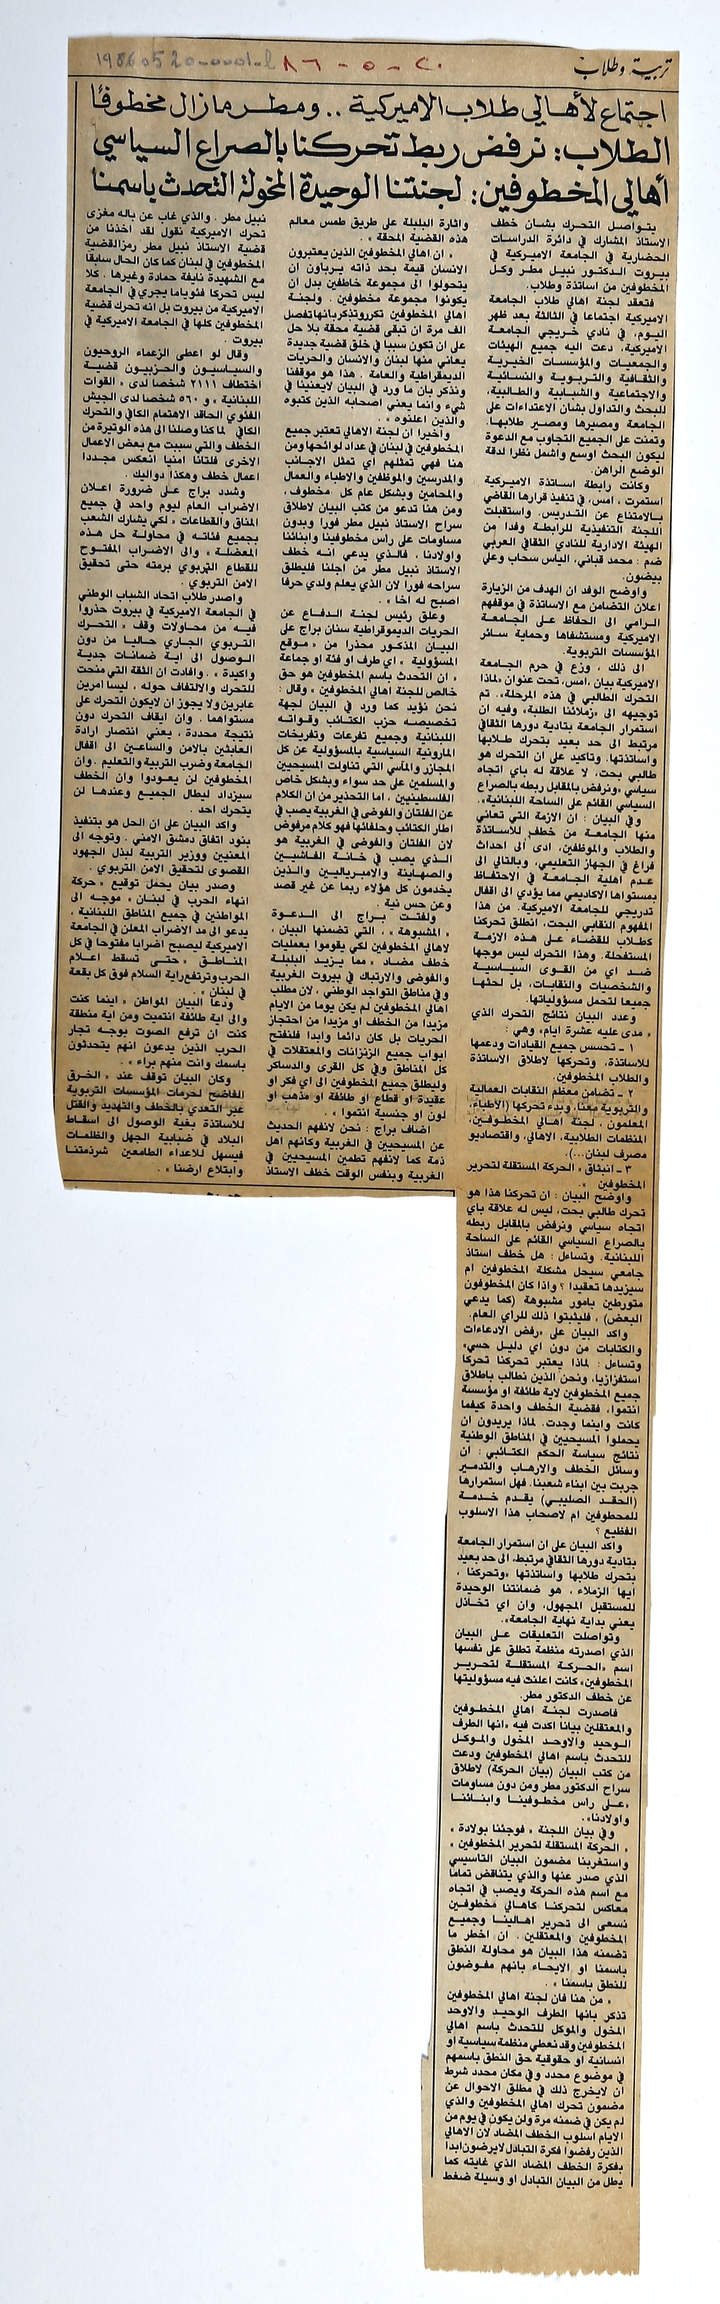 تربية وطلاب
٢٠ - ٥ - ٨٦
اجتماع لأهالي طلاب الاميركية .. ومطر مازال مخطوفاً
الطلاب: نرفض ربط تحركنا بالصراع السياسي
أهالي المخطوفين: لجنتنا الوحيدة المخولة التحدث باسمنا
يتواصل التحرك بشان خطف
الاستاذ المشارك في دائرة الدراسات
الحضارية في الجامعة الاميركية في
بيروت الدكتور نبيل مطر وكل
المخطوفين من اساتذة وطلاب.
فتعقد لجنة اهالي طلاب الجامعة
الاميركية اجتماعا في الثالثة بعد ظهر
اليوم، في نادي خريجي الجامعة
الاميركية، دعت اليه جميع الهيئات
والجمعيات والمؤسسات الخيرية
والثقافية والتربوية والنسائية
والاجتماعية والشبابية والطالبية،
للبحث والتداول بشان الاعتداءات على
الجامعة ومصيرها ومصير طلابها.
وتمنت على الجميع التجاوب مع الدعوة
ليكون البحث اوسع واشمل نظرا لدقة
الوضع الراهن.
وكانت رابطة اساتذة الاميركية
استمرت ، امس، في تنفيذ قرارها القاضي
بالامتناع عن التدريس. واستقبلت
اللجنة التنفيذية للرابطة وفدا من
الهيئة الادارية للنادي الثقافي العربي
ضم : محمد قباني، الياس سحاب وعلي
بيضون.
واوضح الوفد ان الهدف من الزيارة
اعلان التضامن مع الاساتذة في موقفهم
الرامي الى الحفاظ على الجامعة
الاميركية ومستشفاها وحماية سائر
المؤسسات التربوية.
الى ذلك ، وزع في حرم الجامعة
الاميركية بيان ،امس، تحت عنوان «لماذا
التحرك الطالبي في هذه المرحلة». تم
توجيهه الى «زملائنا الطلبة، وفيه ان
استمرار الجامعة بتادية دورها الثقافي
مرتبط الى حد بعيد بتحرك طلابها
واساتذتها. وتاكيد على ان التحرك هو
طالبي بحت، لا علاقة له باي اتجاه
سياسي «ونرفض بالمقابل ربطه بالصراع
السياسي القائم على الساحة اللبنانية».
وفي البيان : ان الازمة التي تعاني
منها الجامعة من خطف للاساتذة
والطلاب والموظفين، ادى الى احداث
فراغ في الجهاز التعليمي، وبالتالي الى
عدم اهلية الجامعة في الاحتفاظ
بمستواها الاكاديمي مما يؤدي الى اقفال
تدريجي للجامعة الاميركية. من هذا
المفهوم النقابي البحت، انطلق تحركنا
كطلاب للقضاء على هذه الازمة
المستفحلة. وهذا التحرك ليس موجها
ضد اي من القوى السياسية
والشخصيات والنقابات، بل لحثها
جميعا لتحمل مسؤولياتها.
وعدد البيان نتائج التحرك الذي
« مدى عليه عشرة ايام، وهي :
١ - تحسس جميع القيادات ودعمها
للاساتذة، وتحركها لاطلاق الاساتذة
والطلاب المخطوفين.
٢ - تضامن معظم النقابات العمالية
والتربوية معنا، وبدء تحركها (الاطباء،
المعلمون ، لجنة اهالي المخطوفين،
المنظمات الطلابية، الاهالي، واقتصاديو
مصرف لبنان...).
٣ - انبثاق « الحركة المستقلة لتحرير
المخطوفين ».
واوضح البيان : ان تحركنا هذا هو
تحرك طالبي بحت، ليس له علاقة باي
اتجاه سياسي ونرفض بالمقابل ربطه
بالصراع السياسي القائم على الساحة
اللبنانية. وتساءل : هل خطف استاذ
جامعي سيحل مشكلة المخطوفين ام
سيزيدها تعقيدا ؟ واذا كان المخطوفون
متورطين بامور مشبوهة (كما يدعي
البعض) ، فليثبتوا ذلك للراي العام.
واكد البيان على «رفض الادعاءات
والكتابات من دون اي دليل حسي»
وتساءل : لماذا يعتبر تحركنا تحركا
استفزازيا، ونحن الذين نطالب باطلاق
جميع المخطوفين لاية طائفة او مؤسسة
انتموا، فقضية الخطف واحدة كيفما
كانت واينما وجدت. لماذا يريدون ان
يحملوا المسيحيين في المناطق الوطنية
نتائج سياسة الحكم الكتائبي : ان
وسائل الخطف والارهاب والتدمير
جربت بين ابناء شعبنا. فهل استمرارها
(الحقد الصليبي) يقدم خدمة
للمخطوفين ام لاصحاب هذا الاسلوب
الفظيع ؟
واكد البيان على ان استمرار الجامعة
بتادية دورها الثقافي مرتبط، الى حد بعيد
بتحرك طلابها واساتذتها «وتحركنا ،
ايها الزملاء ، هو ضمانتنا الوحيدة
للمستقبل المجهول، وان اي تخاذل
يعني بداية نهاية الجامعة».
وتواصلت التعليقات على البيان
الذي اصدرته منظمة تطلق على نفسها
اسم «الحركة المستقلة لتحرير
المخطوفين، كانت اعلنت فيه مسؤوليتها
عن خطف الدكتور مطر.
فاصدرت لجنة اهالي المخطوفين
والمعتقلين بيانا اكدت فيه «انها الطرف
الوحيد والاوحد المخول والموكل
للتحدث باسم اهالي المخطوفين ودعت
من كتب البيان (بيان الحركة) لاطلاق
سراح الدكتور مطر ومن دون مساومات
«على راس مخطوفينا وابنائنا
واولادنا».
وفي بيان اللجنة « فوجئنا بولادة «
« الحركة المستقلة لتحرير المخطوفين «
واستغربنا مضمون البيان التاسيسي
الذي صدر عنها والذي يتناقض تماما
مع اسم هذه الحركة ويصب في اتجاه
معاكس لتحركنا كاهالي مخطوفين
نسعى الى تحرير اهالينا وجميع
المخطوفين والمعتقلين . ان اخطر ما
تضمنه هذا البيان هو محاولة النطق
باسمنا او الايحاء بانهم مفوضون
للنطق باسمنا » .
« من هنا فان لجنة اهالي المخطوفين
تذكر بانها الطرف الوحيد والاوحد
المخول والموكل للتحدث باسم اهالي
المخطوفين وقد نعطي منظمة سياسية او
انسانية او حقوقية حق النطق باسمهم
في موضوع محدد وفي مكان محدد شرط
ان لايخرج ذلك في مطلق الاحوال عن
مضمون تحرك اهالي المخطوفين والذي
لم يكن في ضمنه مرة ولن يكون في يوم من
الايام اسلوب الخطف المضاد لان الاهالي
الذين رفضوا فكرة التبادل لايرضون ابدا
بفكرة الخطف المضاد الذي غايته كما
يطل من البيان التبادل او وسيلة ضغط
واثارة البلبلة على طريق طمس معالم
هذه القضية المحقة » .
« ان اهالي المخطوفين الذين يعتبرون
الانسان قيمة بحد ذاته يرباون ان
يتحولوا الى مجموعة خاطفين بدل ان
يكونوا مجموعة مخطوفين . ولجنة
اهالي المخطوفين تكرر وتذكر بانها تفضل
الف مرة ان تبقى قضية محقة بلا حل
على ان تكون سببا في خلق قضية جديدة
يعاني منها لبنان والانسان والحريات
الديمقراطية والعامة . هذا هو موقفنا
ونذكر بان ما ورد في البيان لايعنينا في
شيء وانما يعني اصحابه الذين كتبوه
والذين اعلنوه »
واخيرا ان لجنة الاهالي تعتبر جميع
المخطوفين في لبنان في عداد لوائحها ومن
هنا فهي تمثلهم اي تمثل الاجانب
والمدرسين والموظفين والاطباء والعمال
والمحامين وبشكل عام كل مخطوف ،
ومن هنا تدعو من كتب البيان لاطلاق
سراح الاستاذ نبيل مطر فورا وبدون
مساومات على راس مخطوفينا وابنائنا
واولادنا ، فالذي يدعي انه خطف
الاستاذ نبيل مطر من اجلنا فليطلق
سراحه فورا لان الذي يعلم ولدي حرفا
اصبح له اخا » .
وعلق رئيس لجنة الدفاع عن
الحريات الديموقراطية سنان براج على
البيان المذكور محذرا من « موقع
المسؤولية » اي طرف او فئة او جماعة
« ان التحدث باسم المخطوفين هو حق
خالص للجنة اهالي المخطوفين » وقال :
نحن نؤيد كما ورد في البيان لجهة
تخصيصه حزب الكتائب وقواته
اللبنانية وجميع تفرعات وتفريخات
المارونية السياسية بالمسؤولية عن كل
المجازر والمآسي التي تناولت المسيحيين
والمسلمين على حد سواء وبشكل خاص
الفلسطينيين ، اما التحذير من ان الكلام
عن الفلتان والفوضى في الغربية يصب في
اطار الكتائب وحلفائها فهو كلام مرفوض
لان الفلتان والفوضى في الغربية هو
الذي يصب في خانة الفاشيين
والصهاينة والامبرياليين والذين
يخدمون كل هؤلاء ربما عن غير قصد
وعن حس نية .
ولفتت براج الى الدعوة
« المشبوهة » ، التي تضمنها البيان ،
لاهالي المخطوفين لكي يقوموا بعمليات
خطف مضاد « مما يزيد البلبلة
والفوضى والارتباك في بيروت الغربية
وفي مناطق التواجد الوطني ، لان مطلب
اهالي المخطوفين لم يكن يوما من الايام
مزيدا من الخطف او مزيدا من احتجاز
الحريات بل كان دائما وابدا فلنفتح
ابواب جميع الزنزانات والمعتقلات في
كل المناطق وفي كل القرى والدساكر
وليطلق جميع المخطوفين الى اي فكر او
عقيدة او قطاع او طائفة او مذهب او
لون او جنسية انتموا » .
اضاف براج : نحن لانفهم الحديث
عن المسيحيين في الغربية وكانهم اهل
ذمة كما لانفهم تطمين المسيحيين في
الغربية وبنفس الوقت خطف الاستاذ
نبيل مطر . والذي غاب عن باله مغزى
تحرك الاميركية نقول لقد اخذنا من
قضية الاستاذ نبيل مطر رمز القضية
المخطوفين في لبنان كما كان الحال سابقا
مع الشهيدة نايفة حمادة وغيرها . كلا
ليس تحركا فئويا ما يجري في الجامعة
الاميركية من بيروت بل انه تحرك قضية
المخطوفين كلها في الجامعة الاميركية في
بيروت .
وقال لو اعطى الزعماء الروحيون
والسياسيون والحزبيون قضية
اختطاف ٢١١١ شخصا لدى « القوات
اللبنانية » و ٥٦٠ شخصا لدى الجيش
الفئوي الحاقد الاهتمام الكافي والتحرك
الكافي لما كنا وصلنا الى هذه الوتيرة من
الخطف والتي سببت مع بعض الاعمال
الاخرى فلتانا امنيا انعكس مجددا
اعمال خطف وهكذا دواليك .
وشدد براج على ضرورة اعلان
الاضراب العام ليوم واحد في جميع
المناق والقطاعات « لكي يشارك الشعب
بجميع فئاته في محاولة حل هذه
المعضلة » والى الاضراب المفتوح
للقطاع التربوي برمته حتى تحقيق
الامن التربوي .
واصدر طلاب اتحاد الشباب الوطني
في الجامعة الاميركية في بيروت حذروا
فيه من محاولات وقف « التحرك
التربوي الجاري حاليا من دون
الوصول الى اية ضمانات جدية
واكيدة » . وافادت ان الثقة التي منحت
للتحرك والالتفاف حوله ، ليسا امرين
عابرين ولا يجوز ان لايكون التحرك على
مستواهما . وان ايقاف التحرك دون
نتيجة محددة ، يعني انتصار ارادة
العابثين بالامن والساعين الى اقفال
الجامعة وضرب التربية والتعليم . وان
المخطوفين لن يعودوا وان الخطف
سيزداد ليطال الجميع وعندها لن
يتحرك احد .
واكد البيان على ان الحل هو بتنفيذ
بنود اتفاق دمشق الامني . وتوجه الى
المعنيين ووزير التربية لبذل الجهود
القصوى لتحقيق الامن التربوي .
وصدر بيان يحمل توقيع « حركة
انهاء الحرب في لبنان » موجه الى
المواطنين في جميع المناطق اللبنانية ،
يدعو الى مد الاضراب المعلن في الجامعة
الاميركية ليصبح اضرابا مفتوحا في كل
المناطق « حتى تسقط اعلام
الحرب وترتفع راية السلام فوق كل بقعة
في لبنان » .
ودعا البيان المواطن « اينما كنت
والى اية طائفة انتميت ومن اية منطقة
كنت ان ترفع الصوت بوجه تجار
الحرب الذين يدعون انهم يتحدثون
باسمك وانت منهم براء » .
وكان البيان توقف عند « الخرق
الفاضح لحرمات المؤسسات التربوية
عبر التعدي بالخطف والتهديد والقتل
للاساتذة بغية الوصول الى اسقاط
البلاد في ضبابية الجهل والظلمات
فيسهل للاعداء الطامعين شرذمتنا
وابتلاع ارضنا » .